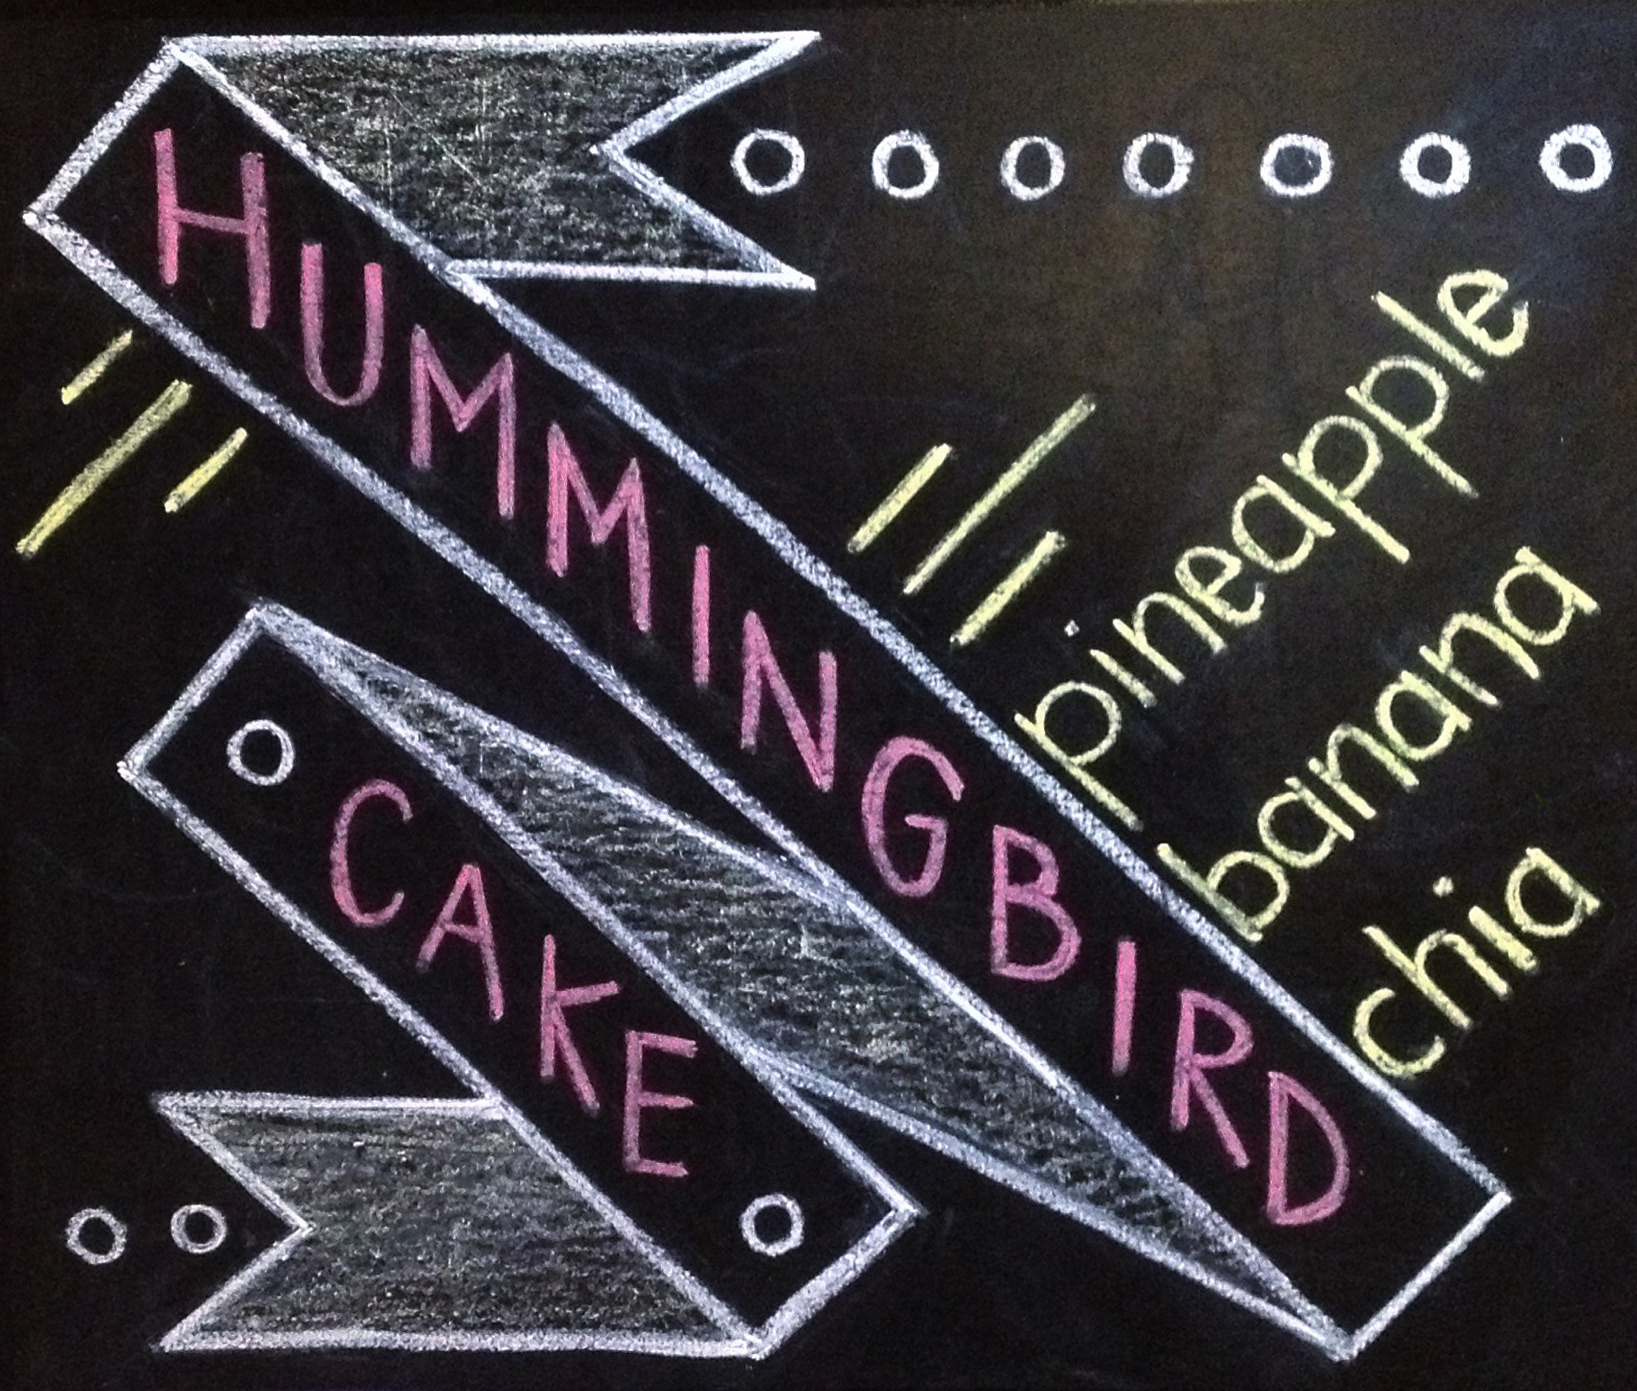 HUMMINGBIRD
CAKE
pineapple
banana
chia